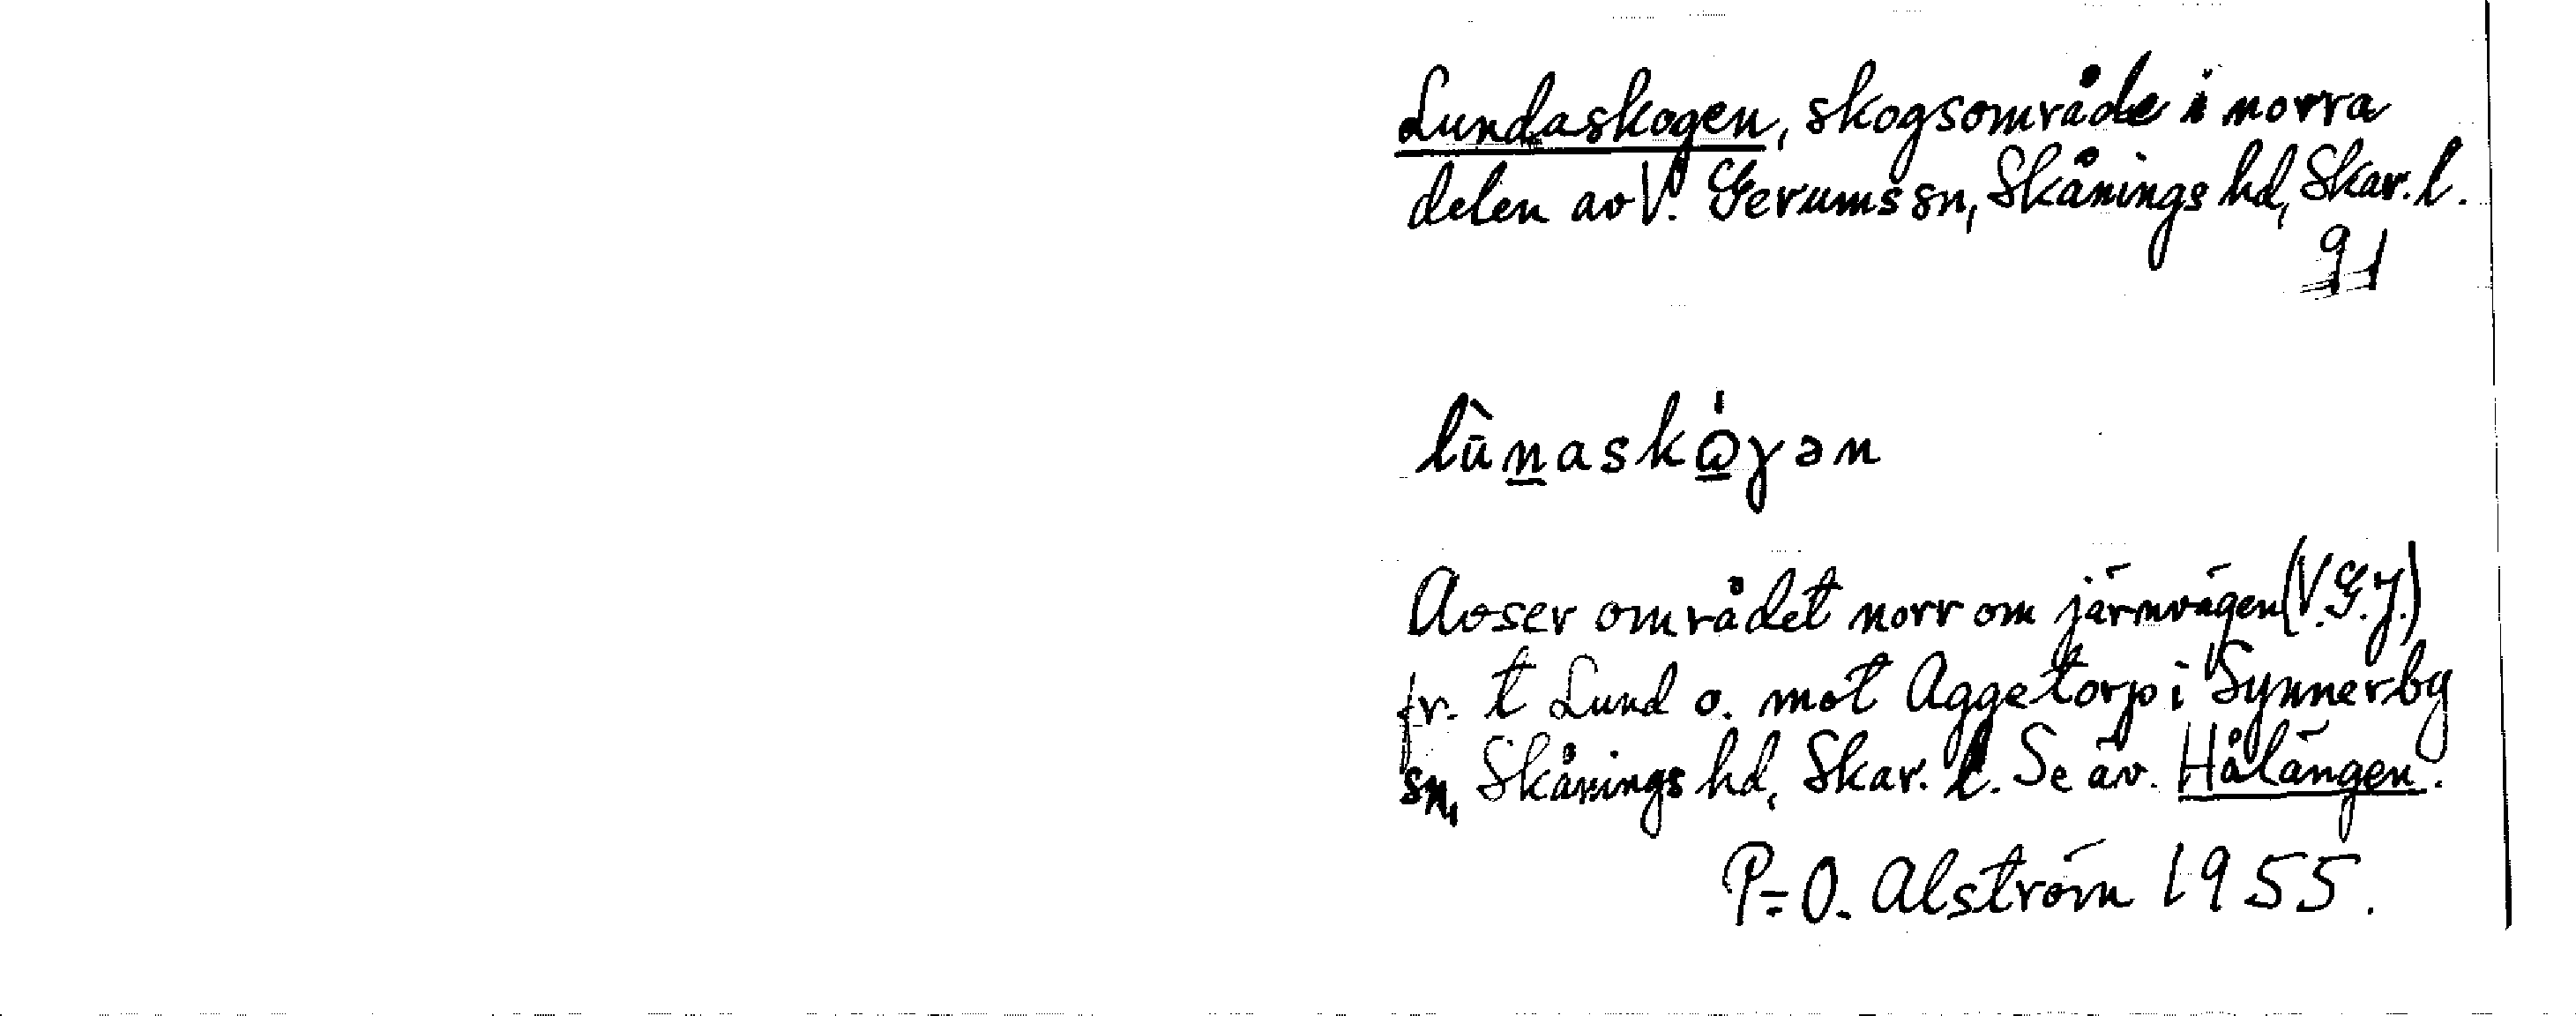 Lundaskogen, skogsområde i norra
delen av V. Gerums sn, Skånings hd, Skar. l.
91
lū̀na̲skώ̲ɣən
Avser området norr om järnvägen (V.G.J.)
fr. t Lund o. mot Aggetorp i Synnerby
sn, Skånings hd, Skar. l. Se äv. Hålängen.
P.-O. Alström 1955.